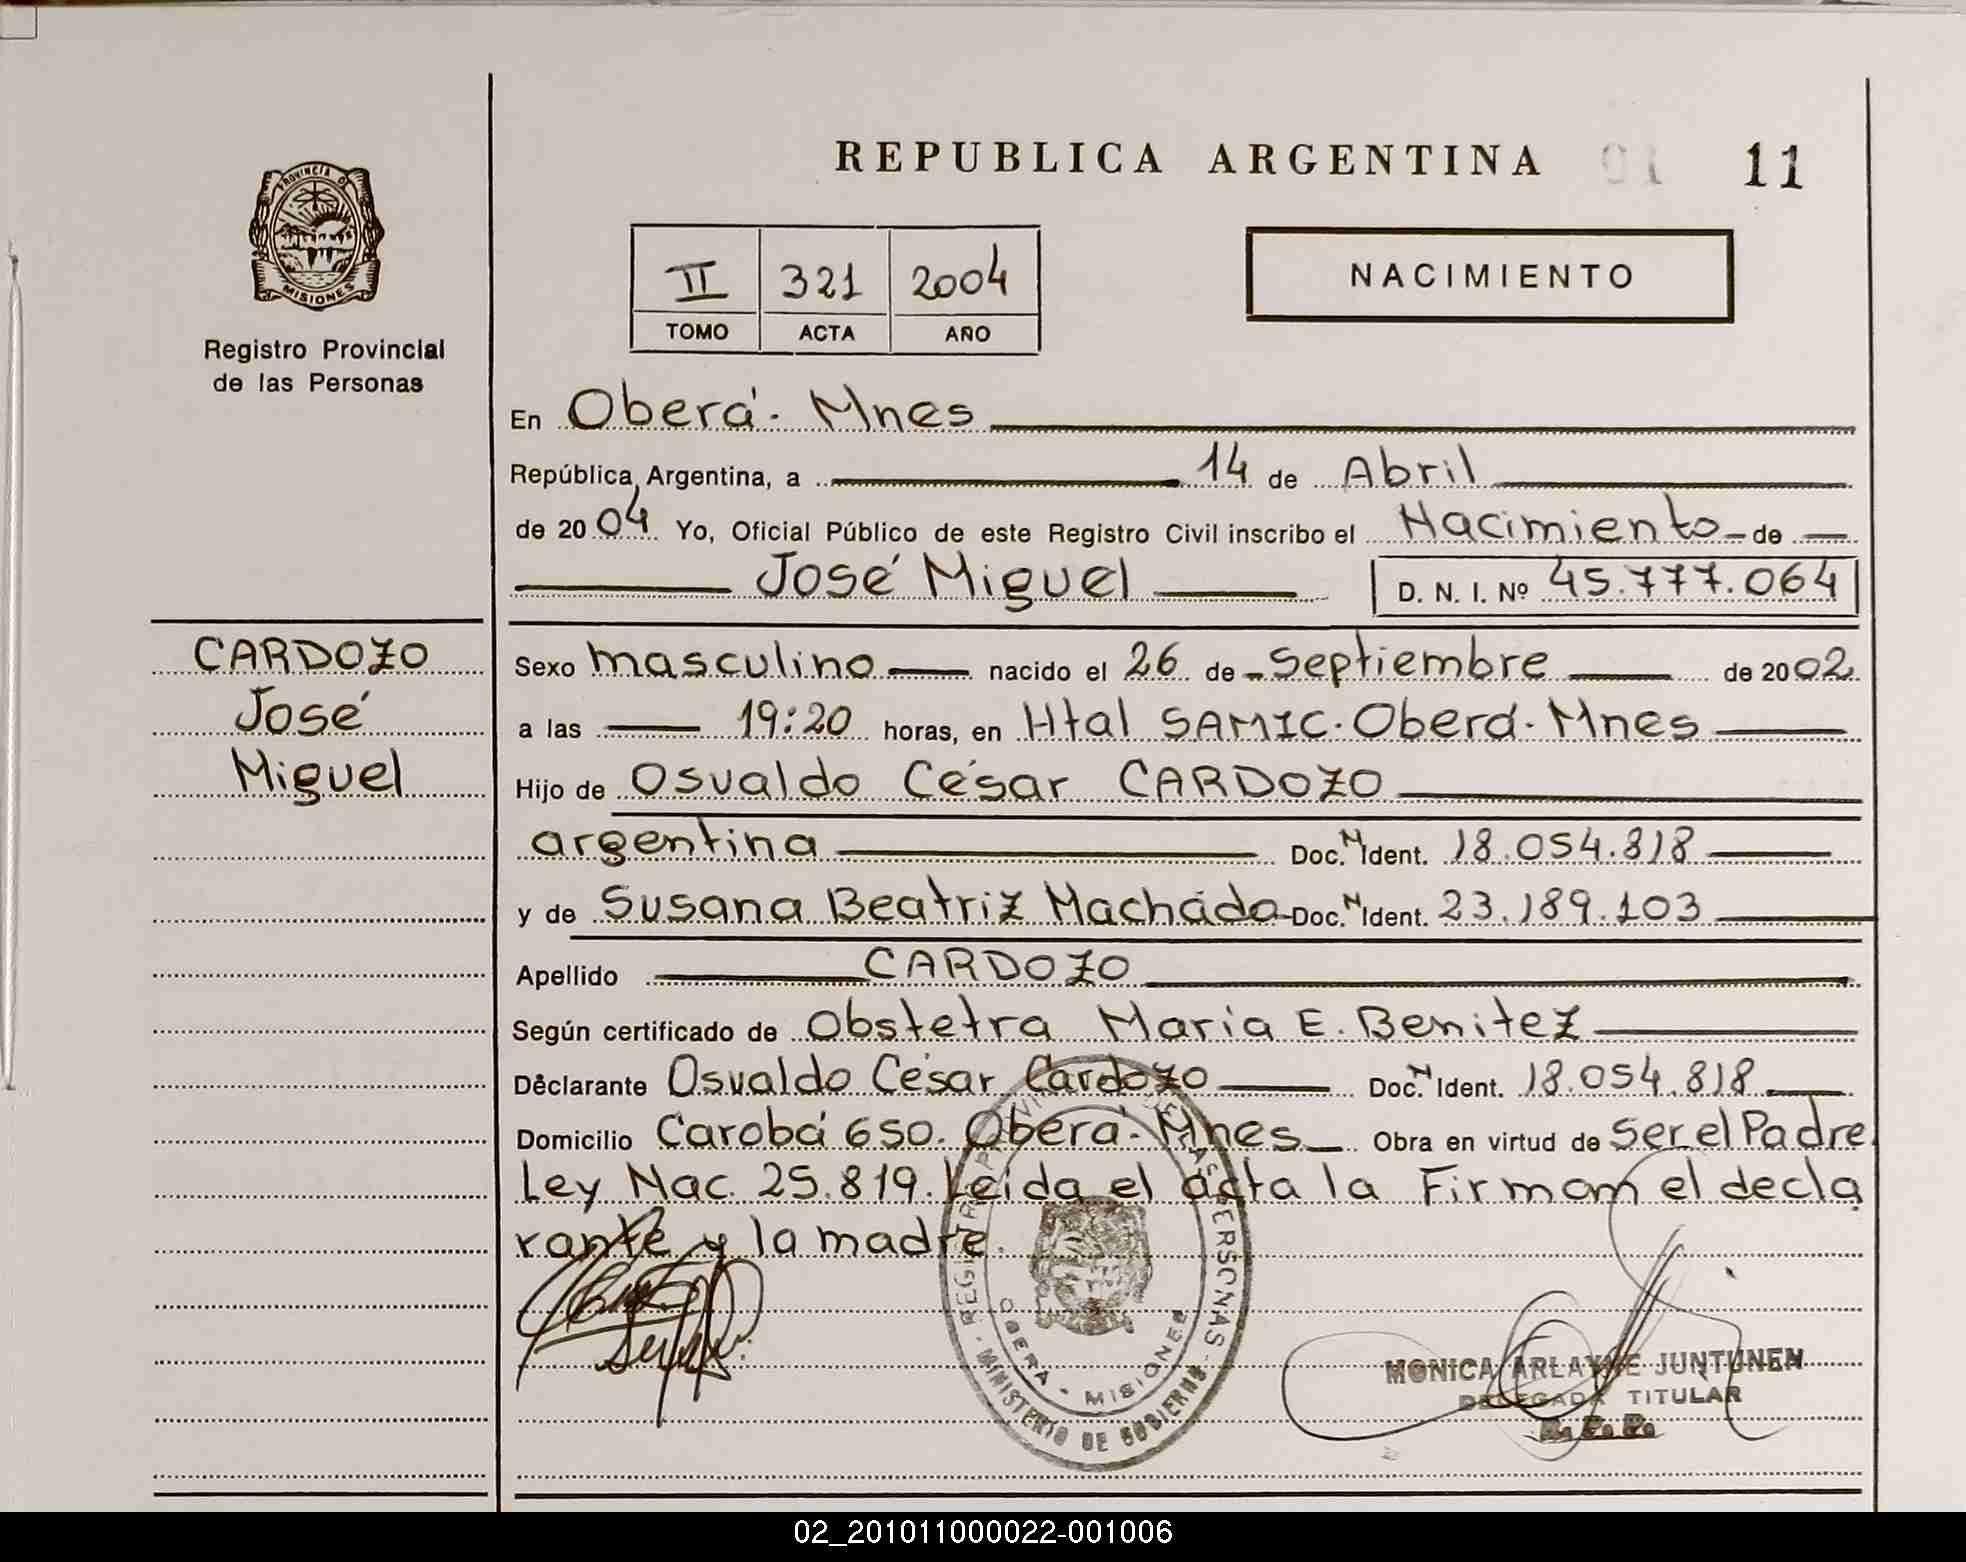 REPUBLICA ARGENTINA 01 11
PROVINCIA DE
MISIONES
Registro Provincial
de las Personas
II 321 2004
TOMO ACTA AÑO
NACIMIENTO
En Oberá - Mnes
República Argentina, a 14 de Abril
de 2004 Yo, Oficial Público de este Registro Civil inscribo el Nacimiento de
José Miguel D. N. I. Nº 45.777.064
CARDOZO
José
Miguel
Sexo masculino nacido el 26 de Septiembre de 2002
a las 19:20 horas, en Htal SAMIC. Oberá - Mnes
Hijo de Osvaldo César CARDOZO
argentina Doc. N Ident. 18.054.818
y de Susana Beatriz Machado Doc. N Ident. 23.189.103
Apellido CARDOZO
Según certificado de Obstetra Maria E. Benitez
Declarante Osvaldo César Cardozo Doc. N Ident. 18.054.818
Domicilio Carobá 650. Oberá - Mnes Obra en virtud de Ser el Padre
Ley Nac. 25.819. Leida el acta la Firman el decla
rante y la madre.
REGISTRO PROVINCIAL DE LAS PERSONAS
OBERÁ - MISIONES
MINISTERIO DE GOBIERNO
MONICA ARLAYNE JUNTUNEN
DELEGADA TITULAR
R. P. P.
02_201011000022-001006